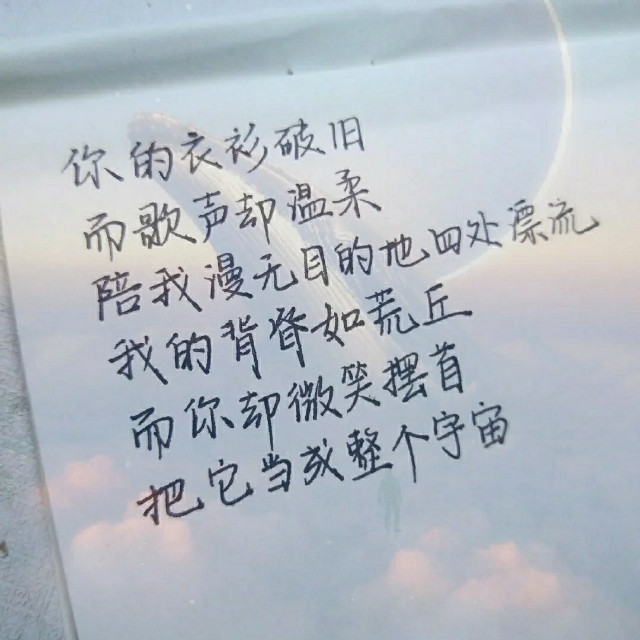 你的衣衫破旧
而歌声却温柔
陪我漫无目的地四处漂流
我的背脊如荒丘
而你却微笑摆首
把它当成整个宇宙